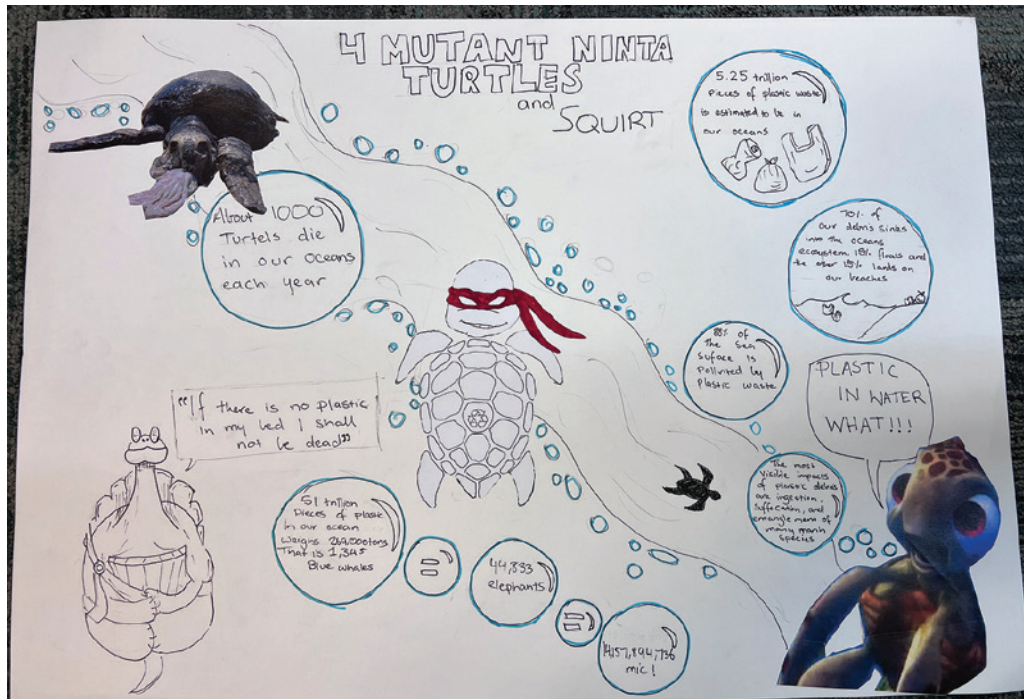 4 MUTANT NINTA
TURTLES
and
SQUIRT
5.25 trillion
pieces of plastic waste
is estimated to be in
our oceans
About 1000
Turtels die
in our oceans
each year
70% of
our debris sinks
into the oceans
ecosystem. 15% floats and
the other 15% lands on
our beaches
88% of
The sea
suface is
polluted by
plastic waste
PLASTIC
IN WATER
WHAT!!!
"If there is no plastic
in my bed I shall
not be dead"
The most
visible impacts
of plastic debres
are ingestion,
suffocation, and
entanglement of
many marin
species
51 trillion
pieces of plastic
in our ocean
weighs
That is 1,345
Blue whales
=
44,833
elephants
=
14,157,894,736
mic!